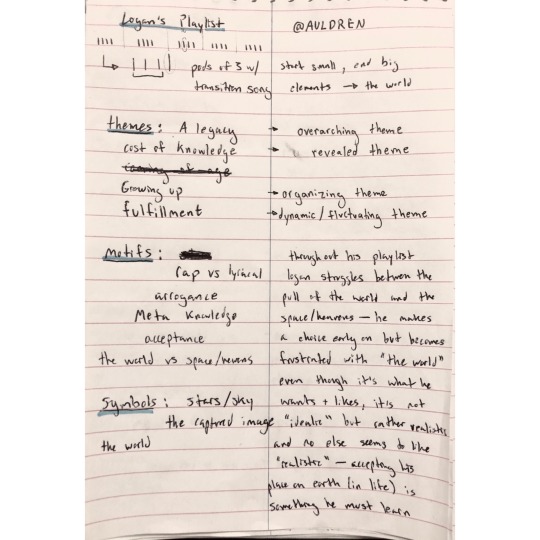 Logan's Playlist
@AULDREN
pods of 3 w/
transition song
start small, end big
elements → the world
themes: A legacy → overarching theme
cost of knowledge → revealed theme
coming of age
Growing up → organizing theme
fulfillment → dynamic/fluctuating theme
motifs:
rap vs lyrical
arrogance
Meta knowledge
acceptance
the world vs space/hevens
Symbols: stars/sky
the captured image
the world
throughout his playlist
logan struggles between the
pull of the world and the
space/heavens — he makes
a choice early on but becomes
frustrated with "the world"
even though it's what he
wants + likes, it's not
"idealic" but rather realistic
and no else seems to like
"realistic" — accepting his
place on earth (in life) is
something he must learn